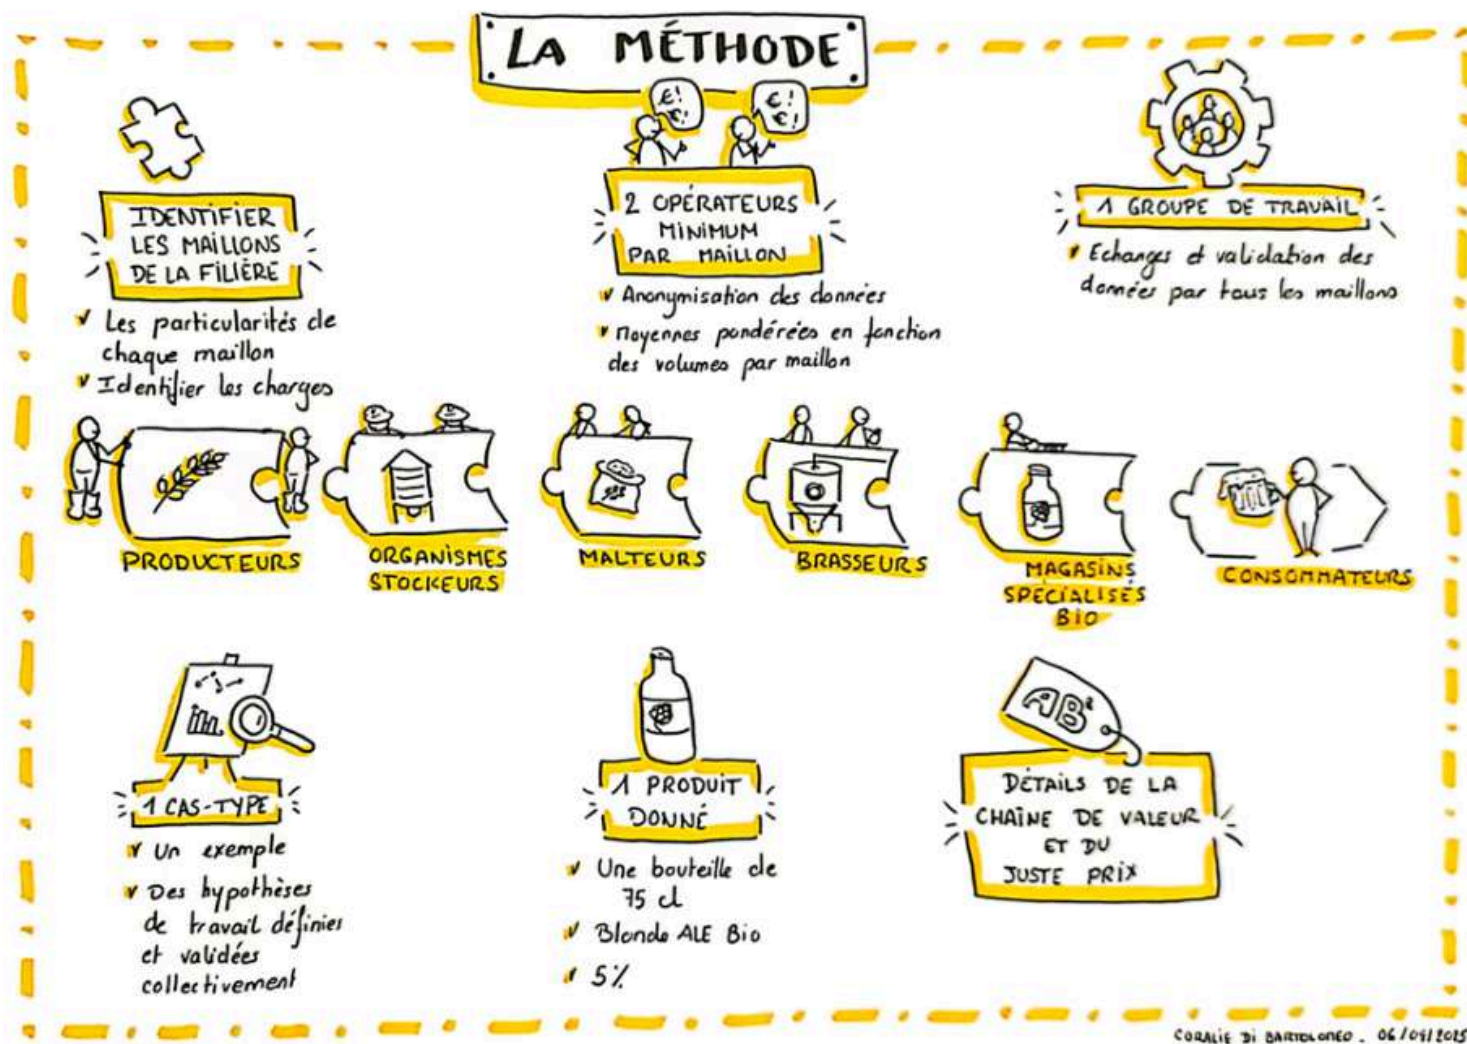 LA MÉTHODE
€!
€!
€!
€!
IDENTIFIER
LES MAILLONS
DE LA FILIÈRE
✓ Les particularités de
chaque maillon
✓ Identifier les charges
2 OPÉRATEURS
MINIMUM
PAR MAILLON
✓ Anonymisation des données
✓ Moyennes pondérées en fonction
des volumes par maillon
1 GROUPE DE TRAVAIL
✓ Echanges et validation des
données par tous les maillons
PRODUCTEURS
ORGANISMES
STOCKEURS
MALTEURS
BRASSEURS
MAGASINS
SPÉCIALISÉS
BIO
CONSOMMATEURS
1 CAS-TYPE
✓ Un exemple
✓ Des hypothèses
de travail définies
et validées
collectivement
1 PRODUIT
DONNÉ
✓ Une bouteille de
75 cl
✓ Blonde ALE Bio
✓ 5%
AB
DÉTAILS DE LA
CHAÎNE DE VALEUR
ET DU
JUSTE PRIX
CORALIE DI BARTOLOMEO.